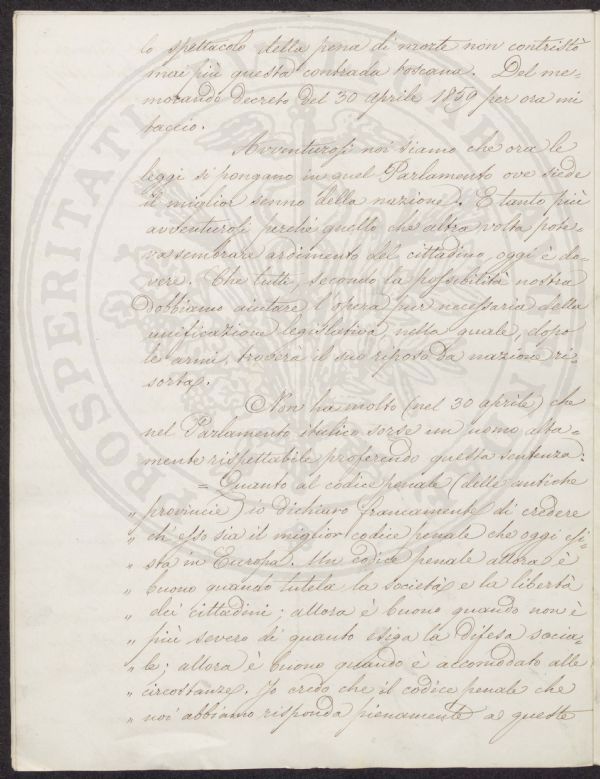 lo spettacolo della pena di morte non contristò
mai più questa contrada toscana. Del me-
morando decreto del 30 aprile 1859 per ora mi
taccio.
Avventurosi noi siamo che ora le
leggi si pongano in quel Parlamento ove siede
il miglior senno della nazione. E tanto più
avventurosi perchè quello che altra volta pote-
va sembrare ardimento del cittadino, oggi è do-
vere. Che tutti, secondo la possibilità nostra
dobbiamo aiutare l'opera pur necessaria della
unificazione legislativa, nella quale, dopo
le armi, troverà il suo riposo la nazione ri-
sorta.
Non ha molto (nel 30 aprile) che
nel Parlamento italico sorse un uomo alta-
mente rispettabile proferendo questa sentenza:
= Quanto al codice penale (delle antiche
„ provincie) io dichiaro francamente di credere
„ ch'esso sia il miglior codice penale che oggi esi-
„ sta in Europa. Un codice penale allora è
„ buono quando tutela la società e la libertà
„ dei cittadini; allora è buono quando non è
„ più severo di quanto esiga la difesa socia-
„ le; allora è buono quando è accomodato alle
„ circostanze. Io credo che il codice penale che
„ noi abbiamo risponda pienamente a queste
PROSPERITATI